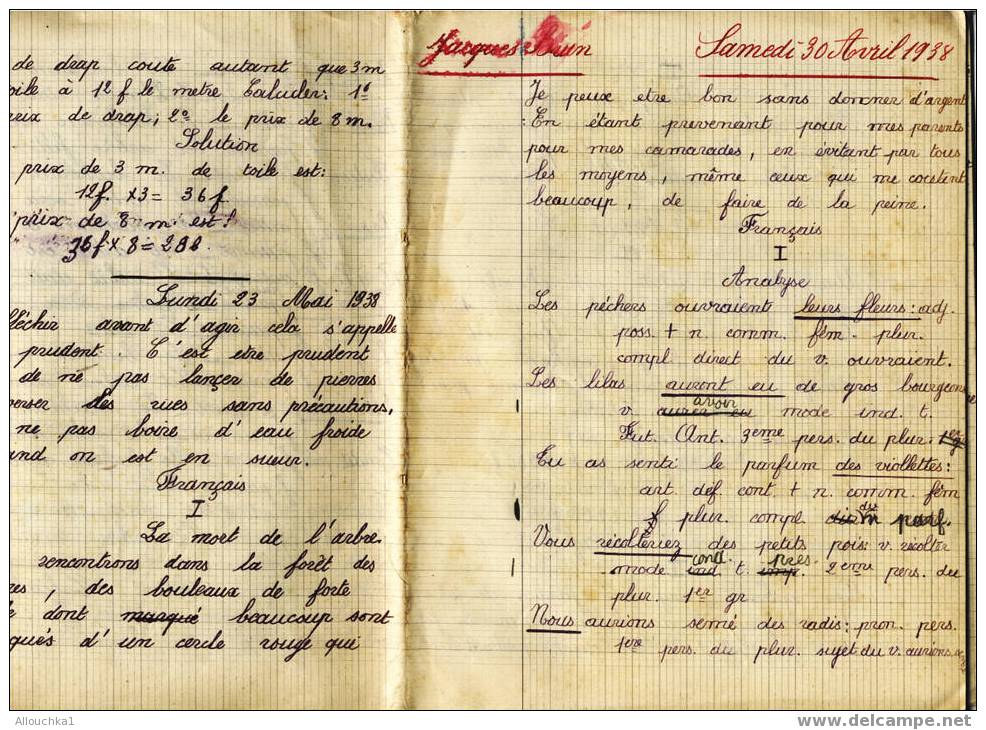 de drap coute autant que 3 m
oile à 12 f le metre Calculer: 1°
rix de drap; 2° le prix de 8 m.
Solution
prix de 3 m. de toile est:
12f. x3 = 36 f
prix de 8 m est:
36 f x 8 = 288.
Lundi 23 Mai 1938
fléchir avant d'agir cela s'appelle
prudent. C'est etre prudent
de ne pas lançer de pierres
verser des rues sans précautions,
ne pas boire d'eau froide
and on est en sueur.
Français
I
La mort de l'arbre.
rencontrons dans la forêt des
res, des bouleaux de forte
dont marqué beaucoup sont
qués d'un cercle rouge qui
Jacques Brun
Samedi 30 Avril 1938
Je peux etre bon sans donner d'argent
: En étant prevenant pour mes parents
pour mes camarades, en évitant par tous
les moyens, même ceux qui me coutent
beaucoup, de faire de la peine.
Français
I
Analyse
Les péchers ouvraient leurs fleurs: adj.
poss. + n comm. fém. plur.
compl direct du v. ouvraient.
Les lilas auront eu de gros bourgeons
v. avoir mode ind. t.
Fut. Ant. 3eme pers. du plur.
Tu as senti le parfum des viollettes:
art. déf. cont. + n. comm. fém
plur. compl du n parf.
Vous récolteriez des petits pois: v. récolter
mode ind. cond. t. imp. pres. 2eme pers. du
plur. 1er gr
Nous aurions semé des radis: pron. pers.
1ère pers. du plur. sujet du v. aurions
Allouchka1
www.delcampe.net